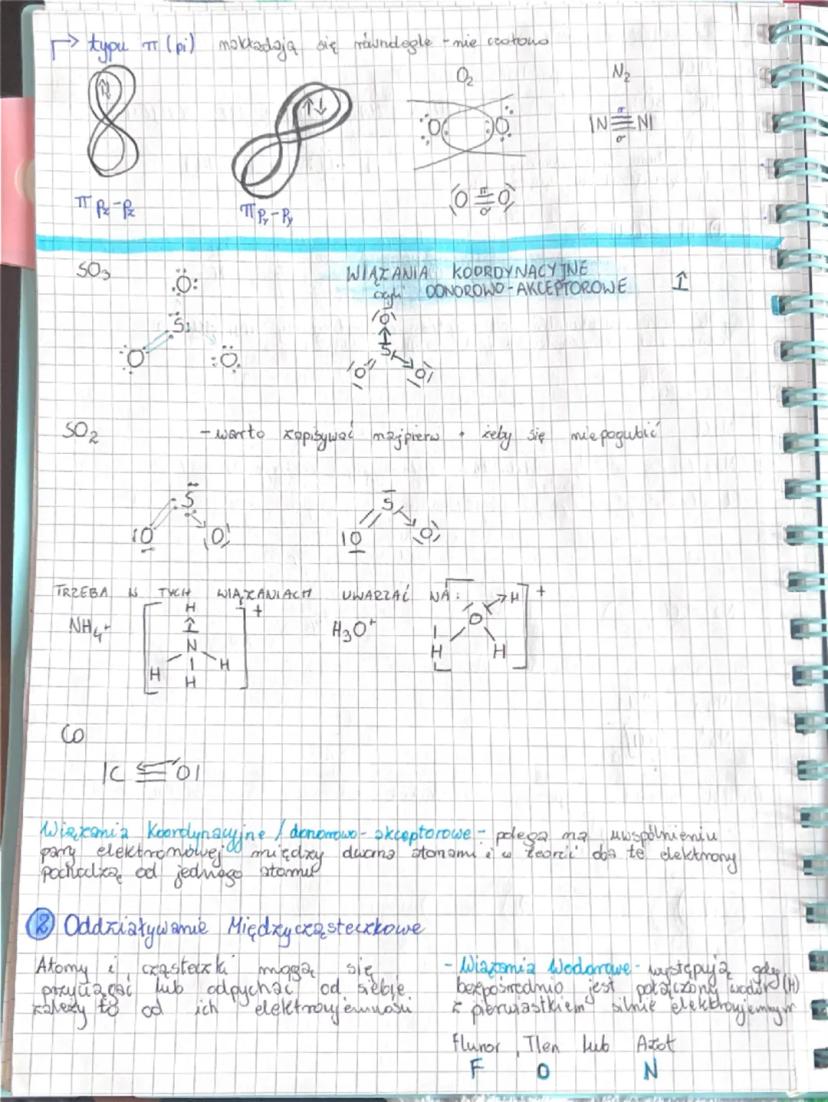 typu π (pi) nakładają się równolegle - nie czołowo
O₂ N₂
π
|N≡N|
σ
π
O=O
σ
π pz-pz π py-py
SO₃ WIĄZANIA KOORDYNACYJNE
czyli DONOROWO-AKCEPTOROWE
O O
S S
O O O O
SO₂ - warto zapisywać najpierw • żeby się niepogubić
S S
O O O O
TRZEBA W TYCH WIĄZANIACH UWARZAĆ NA:
NH₄⁺ H +
N
H H
H
H₃O⁺ H +
O
H H
CO
|C≡O|
Wiązania Koordynacyjne / donorowo-akceptorowe - polega na uwspólnieniu
pary elektronowej między dwoma atomami i w teorii oba te elektrony
pochodzą od jednego atomu
2 Oddziaływanie Międzycząsteczkowe
Atomy i cząsteczki mogą się
przyciągać lub odpychać od siebie
zależy to od ich elektroujemności
- Wiązania Wodorowe - występują gdy
bezpośrednio jest połączony wodór (H)
z pierwiastkiem silnie elektroujemnym
Fluor, Tlen lub Azot
F O N